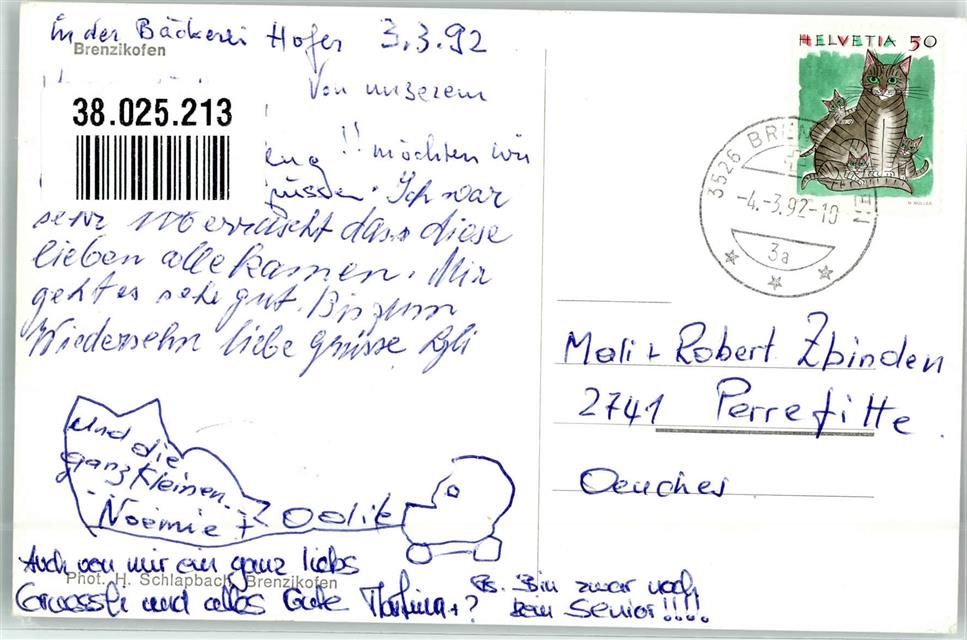 In der Bäckerei Hofer 3.3.92
Brenzikofen
Von unserem
38.025.213
!! möchten wir
Ich war
sehr überrascht dass diese
lieben alle kamen. Mir
geht es sehr gut. Bis zum
Wiedersehn liebe grüsse
und die
ganz kleinen
Noemie +
Auch von mir ein ganz liebs
Phot. H. Schlapbach, Brenzikofen
Gruessli und alles Gute Martina + ?
Ps. Bin zwar noch
kein Senior!!!!
HELVETIA 50
H. MÜLLER
3526 BRENZIKOFEN
-4.-3.92-10
3a
Moli + Robert Zbinden
2741 Perrefitte
Oeuches